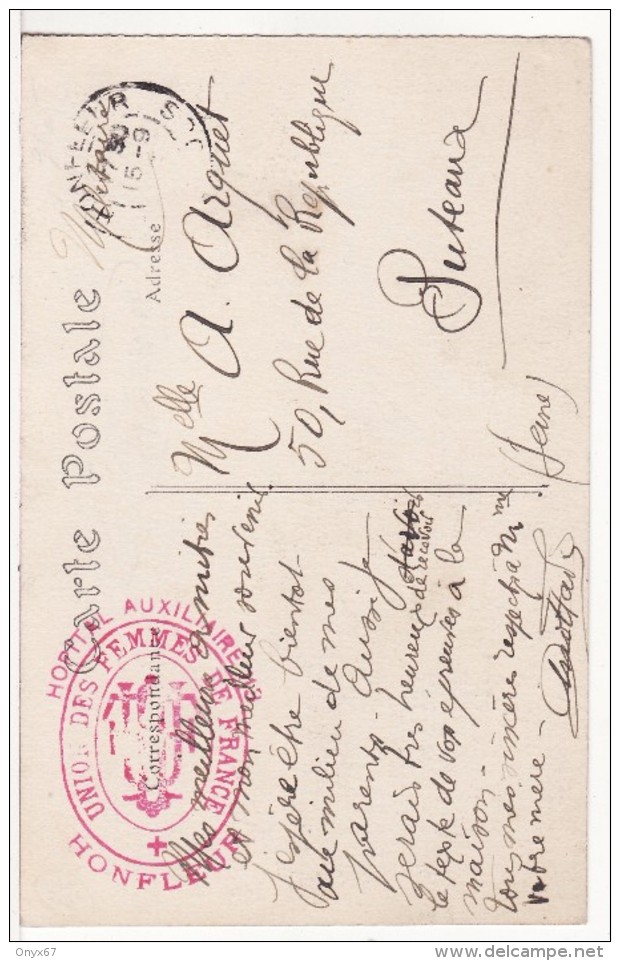 Carte Postale
Militaire
HONFLEUR
15 - 9
Correspondance
Adresse
Mes meilleures amitiés
et mon meilleur souvenir
J'espère être bientôt
au milieu de mes
parents - Aussi je
serais très heureux de recevoir
le texte de vos épreuves à la
maison -
Tous mes sincères respects à Mme
votre mère -
Melle A. Arquet
50, Rue de la République
Puteaux
(Seine)
HOPITAL AUXILIAIRE
UNION DES FEMMES DE FRANCE
HONFLEUR
Onyx67
www.delcampe.net